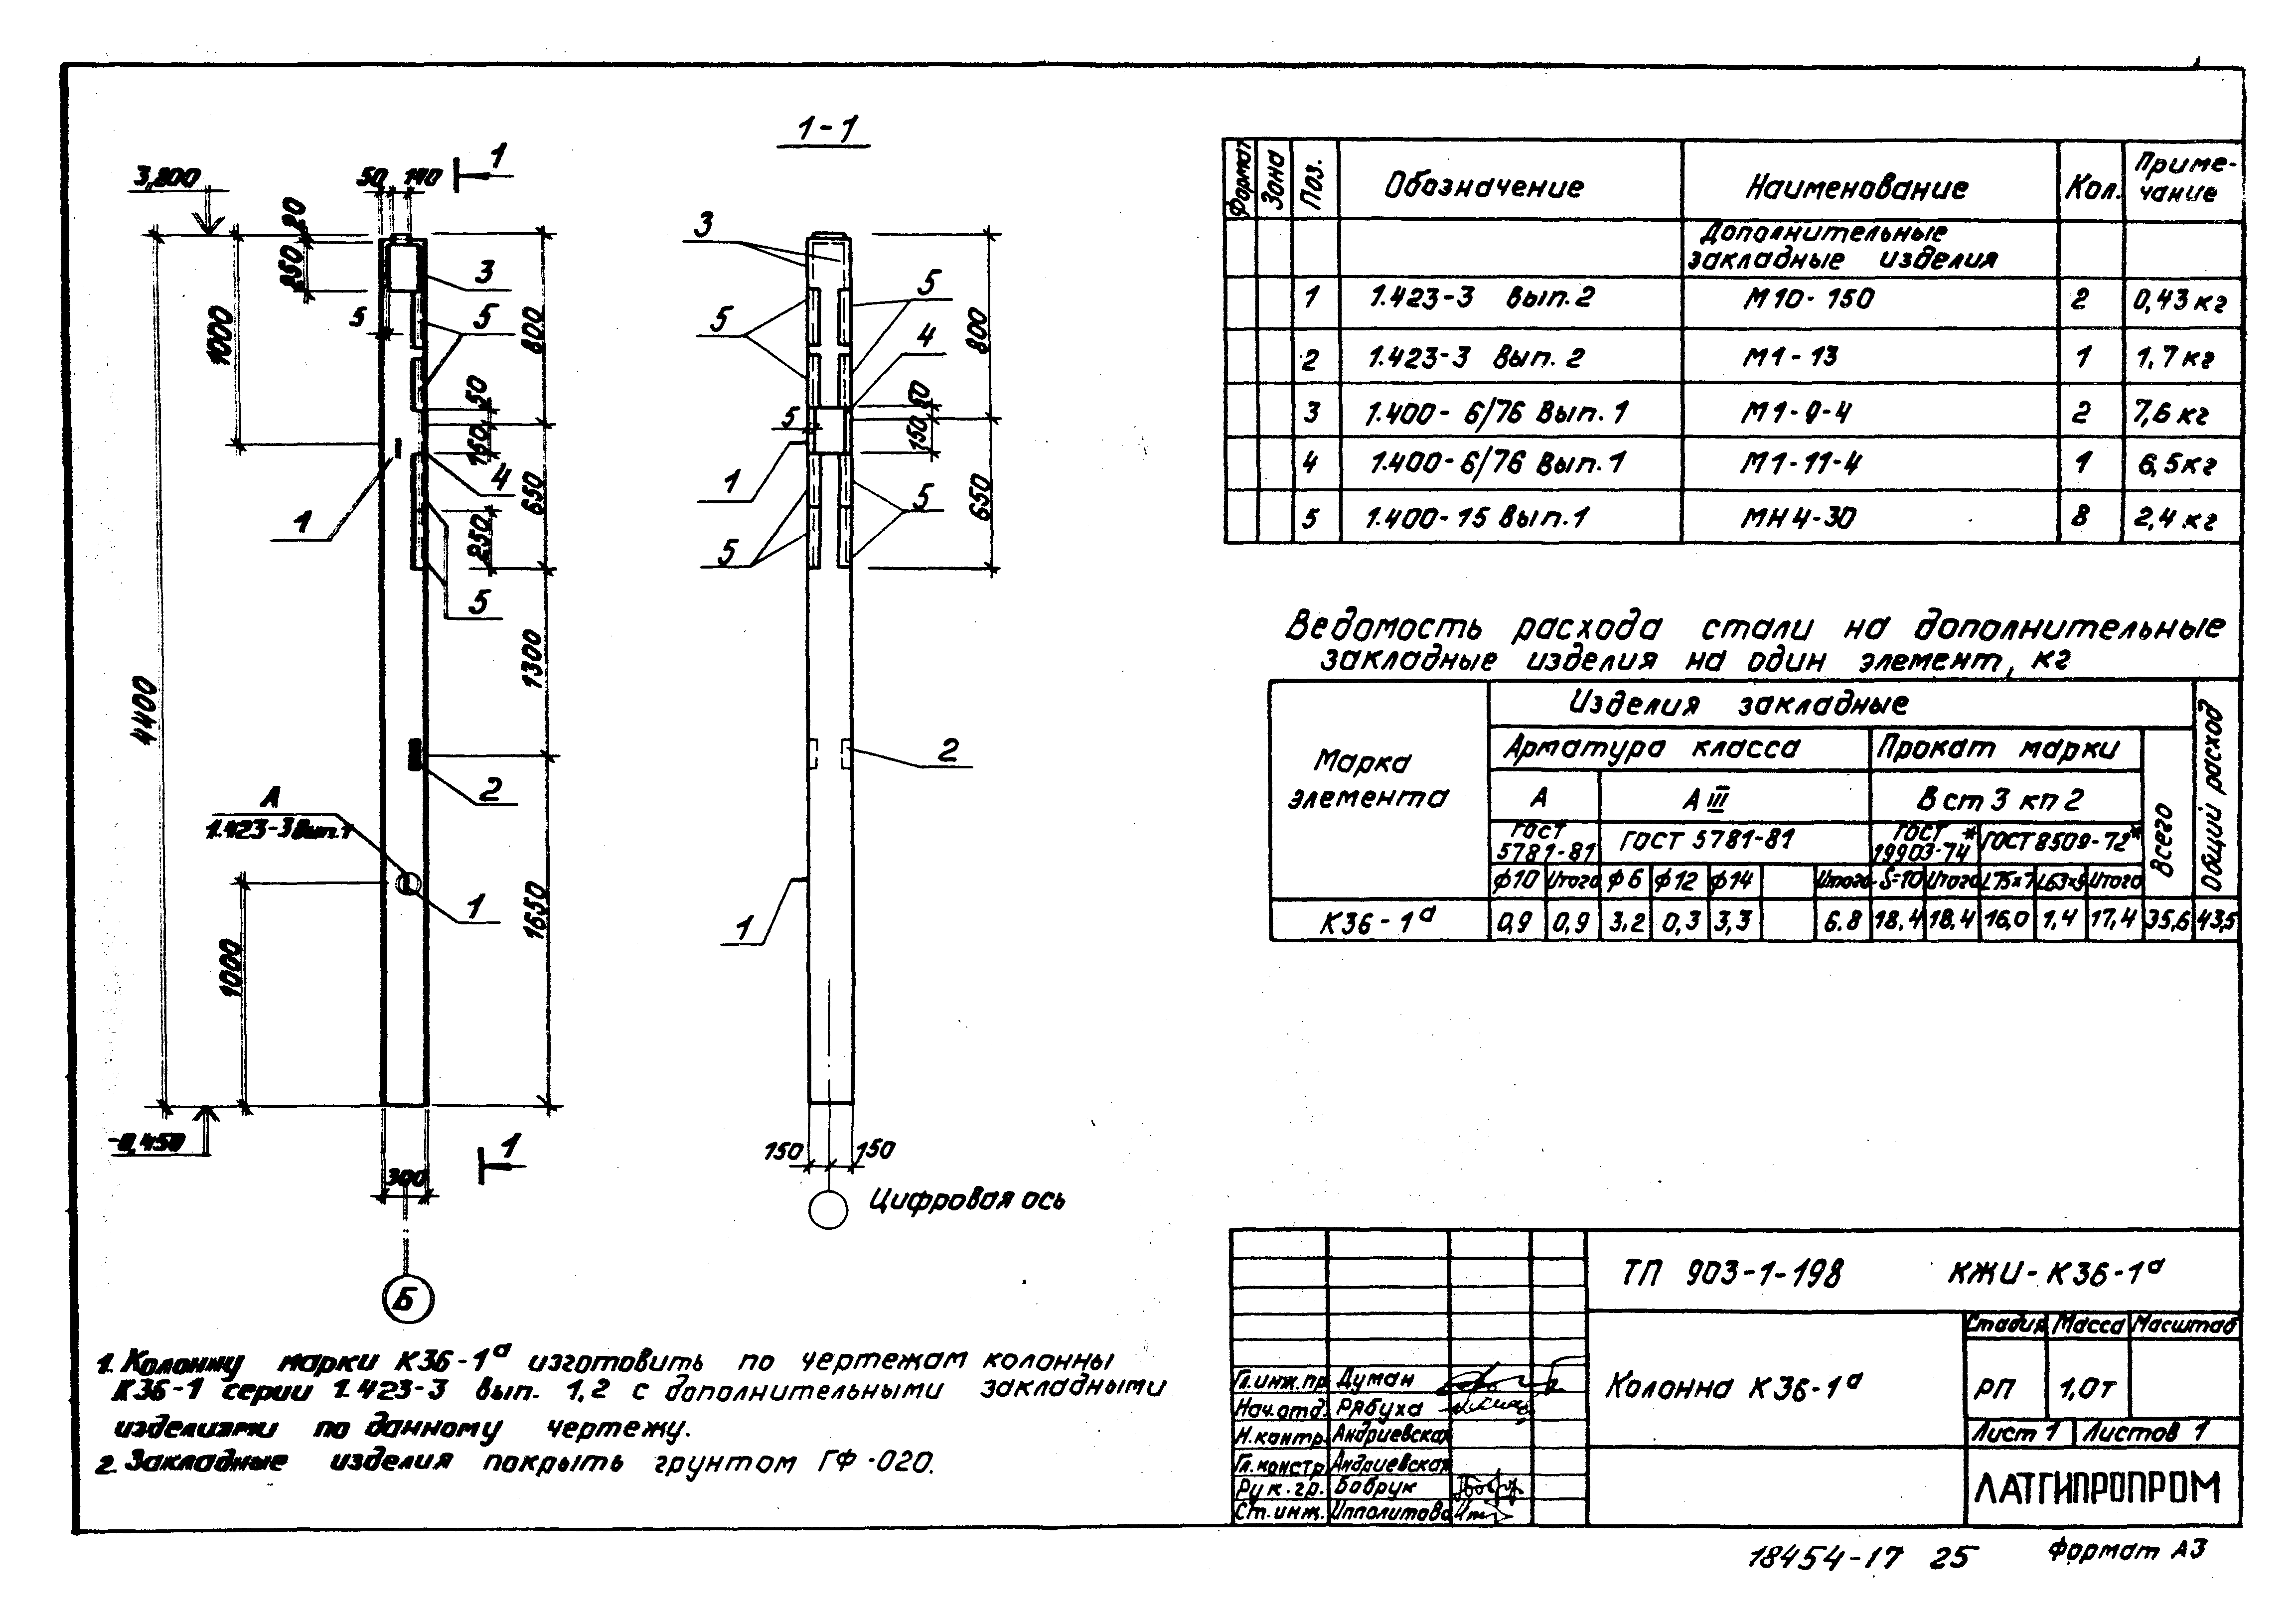 1-1
3,800
50 140
1
20
250
1000
5
3
5
800
50
150
4
650
250
1
5
1300
4400
2
А
1.423-3 Вып.1
1
1000
1650
-0,450
1
300
Б
3
5
5
4
800
50
5
150
1
5
650
5
2
1
150 150
Цифровая ось
1. Колонну марки К36-1ᵃ изготовить по чертежам колонны
К36-1 серии 1.423-3 вып. 1,2 с дополнительными закладными
изделиями по данному чертежу.
2. Закладные изделия покрыть грунтом ГФ-020.
Формат Зона Поз. Обозначение Наименование Кол. Приме-
чание
Дополнительные
закладные изделия
1 1.423-3 Вып. 2 М10-150 2 0,43 кг
2 1.423-3 Вып. 2 М1-13 1 1,7 кг
3 1.400-6/76 Вып. 1 М1-9-4 2 7,6 кг
4 1.400-6/76 Вып. 1 М1-11-4 1 6,5 кг
5 1.400-15 Вып. 1 МН4-30 8 2,4 кг
Ведомость расхода стали на дополнительные
закладные изделия на один элемент, кг
Марка
элемента
Изделия закладные
Общий расход
Арматура класса Прокат марки
Всего
А А III В ст 3 кп 2
ГОСТ
5781-81
ГОСТ 5781-81
ГОСТ *
19903-74
ГОСТ 8509-72*
ф10 Итого ф6 ф12 ф14 Итого S=10 Итого L75×7 L63×5 Итого
К36-1ᵃ 0,9 0,9 3,2 0,3 3,3 6.8 18,4 18,4 16,0 1,4 17,4 35,6 43,5
ТП 903-1-198 КЖИ-К36-1ᵃ
Колонна К36-1ᵃ
Стадия Масса Масштаб
РП 1,0т
Лист 1 Листов 1
ЛАТГИПРОПРОМ
Гл.инж.пр. Думан
Нач.отд. Рябуха
Н.контр. Андриевская
Гл.констр. Андриевская
Рук.гр. Бобрук
Ст.инж. Ипполитова
18454-17 25
Формат А3